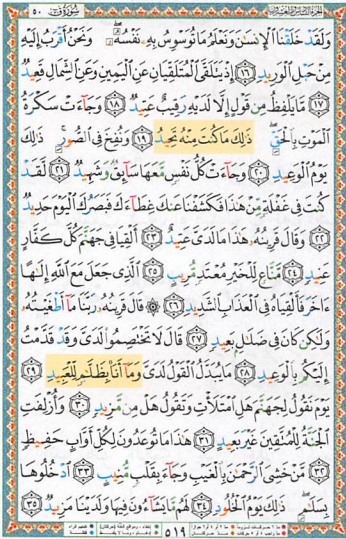 الجزء السادس والعشرون سورة ق ٥٠
وَلَقَدْ خَلَقْنَا ٱلْإِنسَـٰنَ وَنَعْلَمُ مَا تُوَسْوِسُ بِهِۦ نَفْسُهُۥ ۖ وَنَحْنُ أَقْرَبُ إِلَيْهِ
مِنْ حَبْلِ ٱلْوَرِيدِ ١٦ إِذْ يَتَلَقَّى ٱلْمُتَلَقِّيَانِ عَنِ ٱلْيَمِينِ وَعَنِ ٱلشِّمَالِ قَعِيدٌ
١٧ مَّا يَلْفِظُ مِن قَوْلٍ إِلَّا لَدَيْهِ رَقِيبٌ عَتِيدٌ ١٨ وَجَآءَتْ سَكْرَةُ
ٱلْمَوْتِ بِٱلْحَقِّ ۖ ذَٰلِكَ مَا كُنتَ مِنْهُ تَحِيدُ ١٩ وَنُفِخَ فِى ٱلصُّورِ ۚ ذَٰلِكَ
يَوْمُ ٱلْوَعِيدِ ٢٠ وَجَآءَتْ كُلُّ نَفْسٍ مَّعَهَا سَآئِقٌ وَشَهِيدٌ ٢١ لَّقَدْ
كُنتَ فِى غَفْلَةٍ مِّنْ هَـٰذَا فَكَشَفْنَا عَنكَ غِطَآءَكَ فَبَصَرُكَ ٱلْيَوْمَ حَدِيدٌ
٢٢ وَقَالَ قَرِينُهُۥ هَـٰذَا مَا لَدَىَّ عَتِيدٌ ٢٣ أَلْقِيَا فِى جَهَنَّمَ كُلَّ كَفَّارٍ
عَنِيدٍ ٢٤ مَّنَّاعٍ لِّلْخَيْرِ مُعْتَدٍ مُّرِيبٍ ٢٥ ٱلَّذِى جَعَلَ مَعَ ٱللَّهِ إِلَـٰهًا
ءَاخَرَ فَأَلْقِيَاهُ فِى ٱلْعَذَابِ ٱلشَّدِيدِ ٢٦ ۞ قَالَ قَرِينُهُۥ رَبَّنَا مَآ أَطْغَيْتُهُۥ
وَلَـٰكِن كَانَ فِى ضَلَـٰلٍۭ بَعِيدٍ ٢٧ قَالَ لَا تَخْتَصِمُوا۟ لَدَىَّ وَقَدْ قَدَّمْتُ
إِلَيْكُم بِٱلْوَعِيدِ ٢٨ مَا يُبَدَّلُ ٱلْقَوْلُ لَدَىَّ وَمَآ أَنَا۠ بِظَلَّـٰمٍ لِّلْعَبِيدِ ٢٩
يَوْمَ نَقُولُ لِجَهَنَّمَ هَلِ ٱمْتَلَأْتِ وَتَقُولُ هَلْ مِن مَّزِيدٍ ٣٠ وَأُزْلِفَتِ
ٱلْجَنَّةُ لِلْمُتَّقِينَ غَيْرَ بَعِيدٍ ٣١ هَـٰذَا مَا تُوعَدُونَ لِكُلِّ أَوَّابٍ حَفِيظٍ
٣٢ مَّنْ خَشِىَ ٱلرَّحْمَـٰنَ بِٱلْغَيْبِ وَجَآءَ بِقَلْبٍ مُّنِيبٍ ٣٣ ٱدْخُلُوهَا
بِسَلَـٰمٍ ۖ ذَٰلِكَ يَوْمُ ٱلْخُلُودِ ٣٤ لَهُم مَّا يَشَآءُونَ فِيهَا وَلَدَيْنَا مَزِيدٌ ٣٥
٥١٩